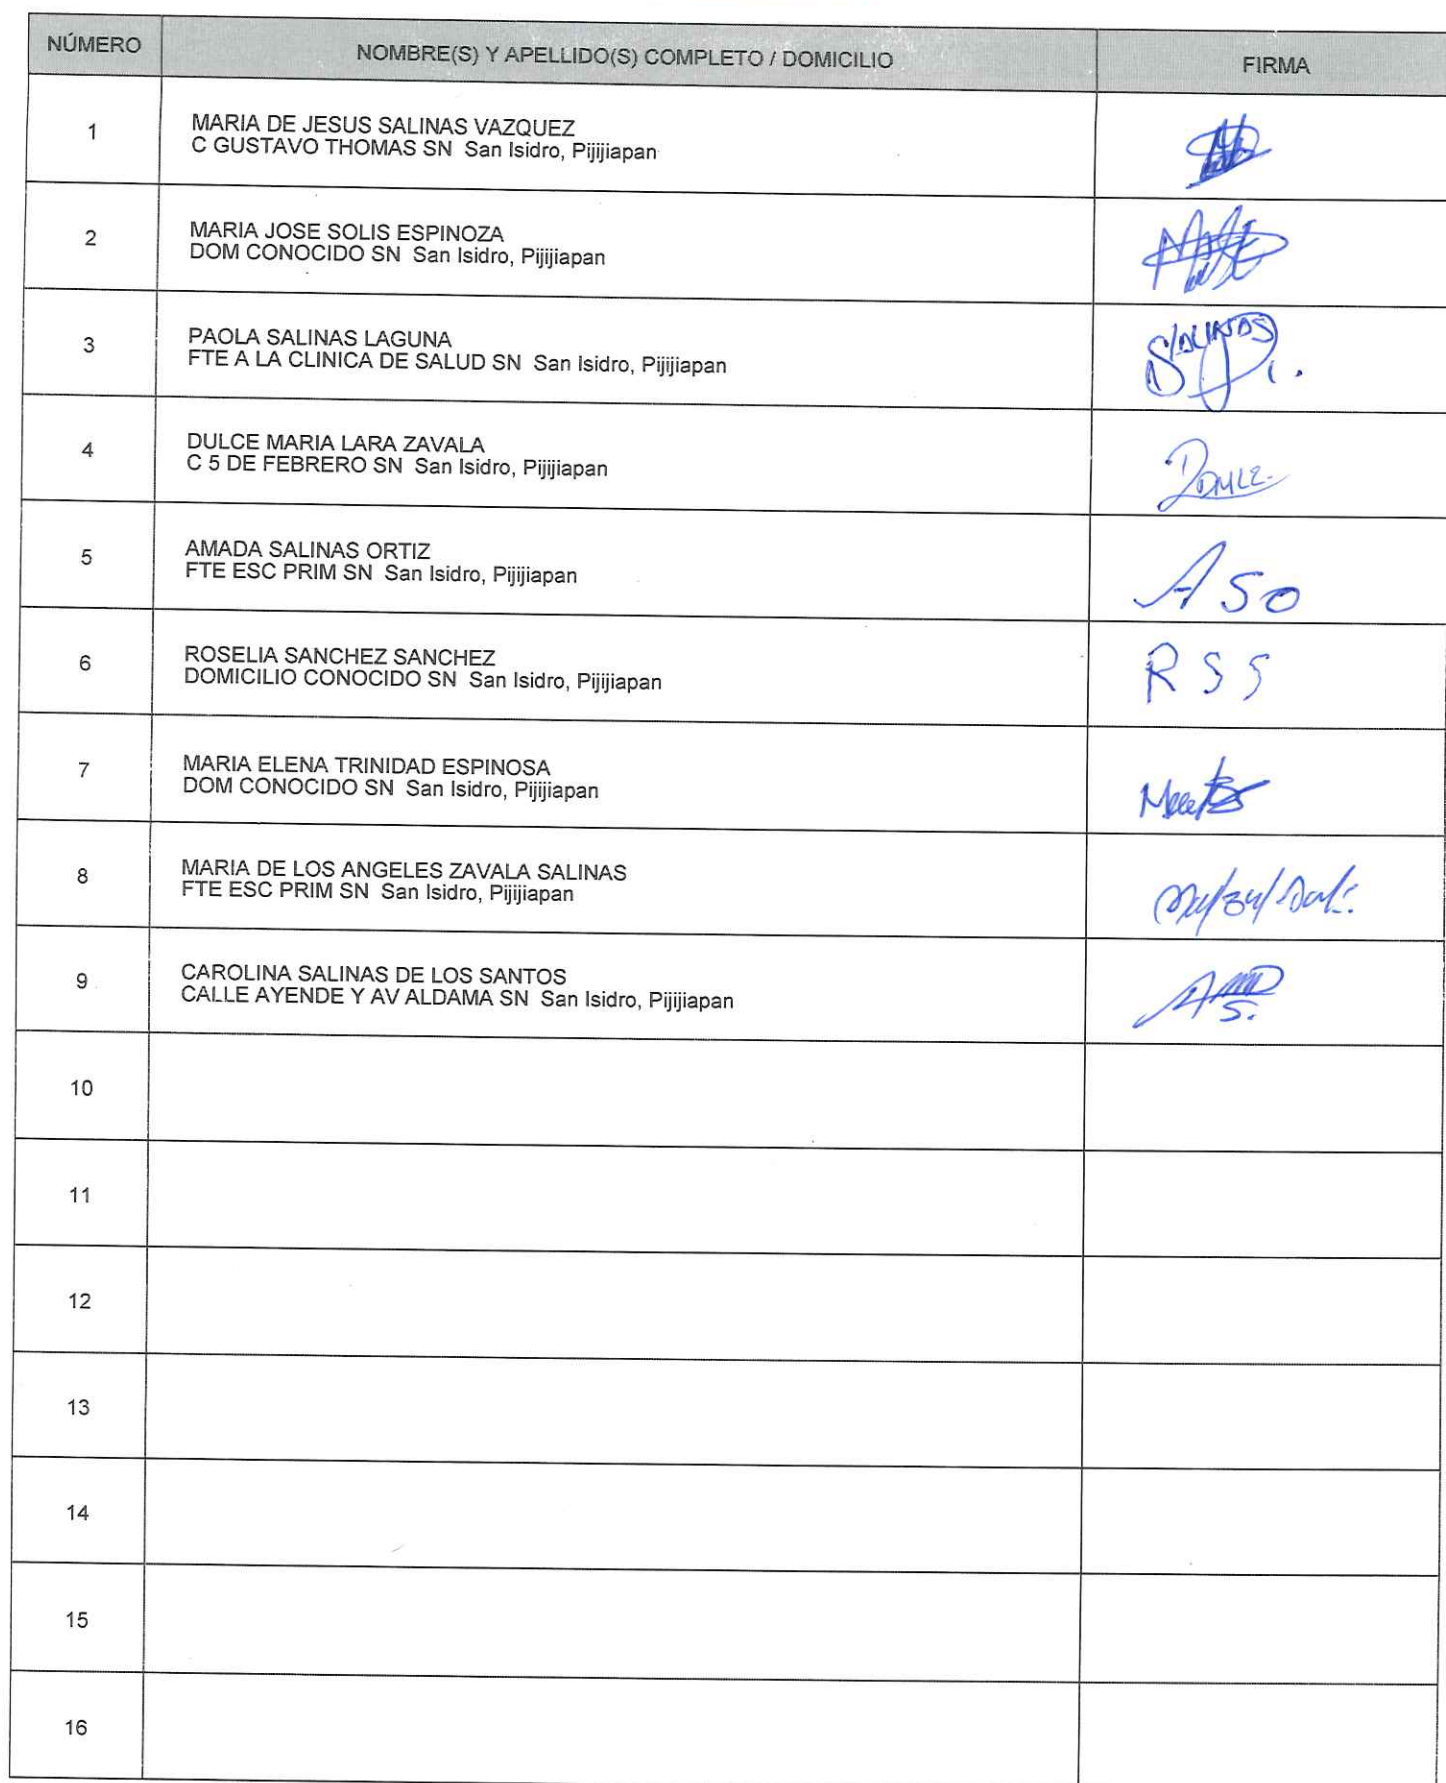 NÚMERO NOMBRE(S) Y APELLIDO(S) COMPLETO / DOMICILIO FIRMA
1 MARIA DE JESUS SALINAS VAZQUEZ
C GUSTAVO THOMAS SN San Isidro, Pijijiapan
2 MARIA JOSE SOLIS ESPINOZA
DOM CONOCIDO SN San Isidro, Pijijiapan
3 PAOLA SALINAS LAGUNA
FTE A LA CLINICA DE SALUD SN San Isidro, Pijijiapan
4 DULCE MARIA LARA ZAVALA
C 5 DE FEBRERO SN San Isidro, Pijijiapan
5 AMADA SALINAS ORTIZ
FTE ESC PRIM SN San Isidro, Pijijiapan
A S O
6 ROSELIA SANCHEZ SANCHEZ
DOMICILIO CONOCIDO SN San Isidro, Pijijiapan
R S S
7 MARIA ELENA TRINIDAD ESPINOSA
DOM CONOCIDO SN San Isidro, Pijijiapan
8 MARIA DE LOS ANGELES ZAVALA SALINAS
FTE ESC PRIM SN San Isidro, Pijijiapan
9 CAROLINA SALINAS DE LOS SANTOS
CALLE AYENDE Y AV ALDAMA SN San Isidro, Pijijiapan
10
11
12
13
14
15
16